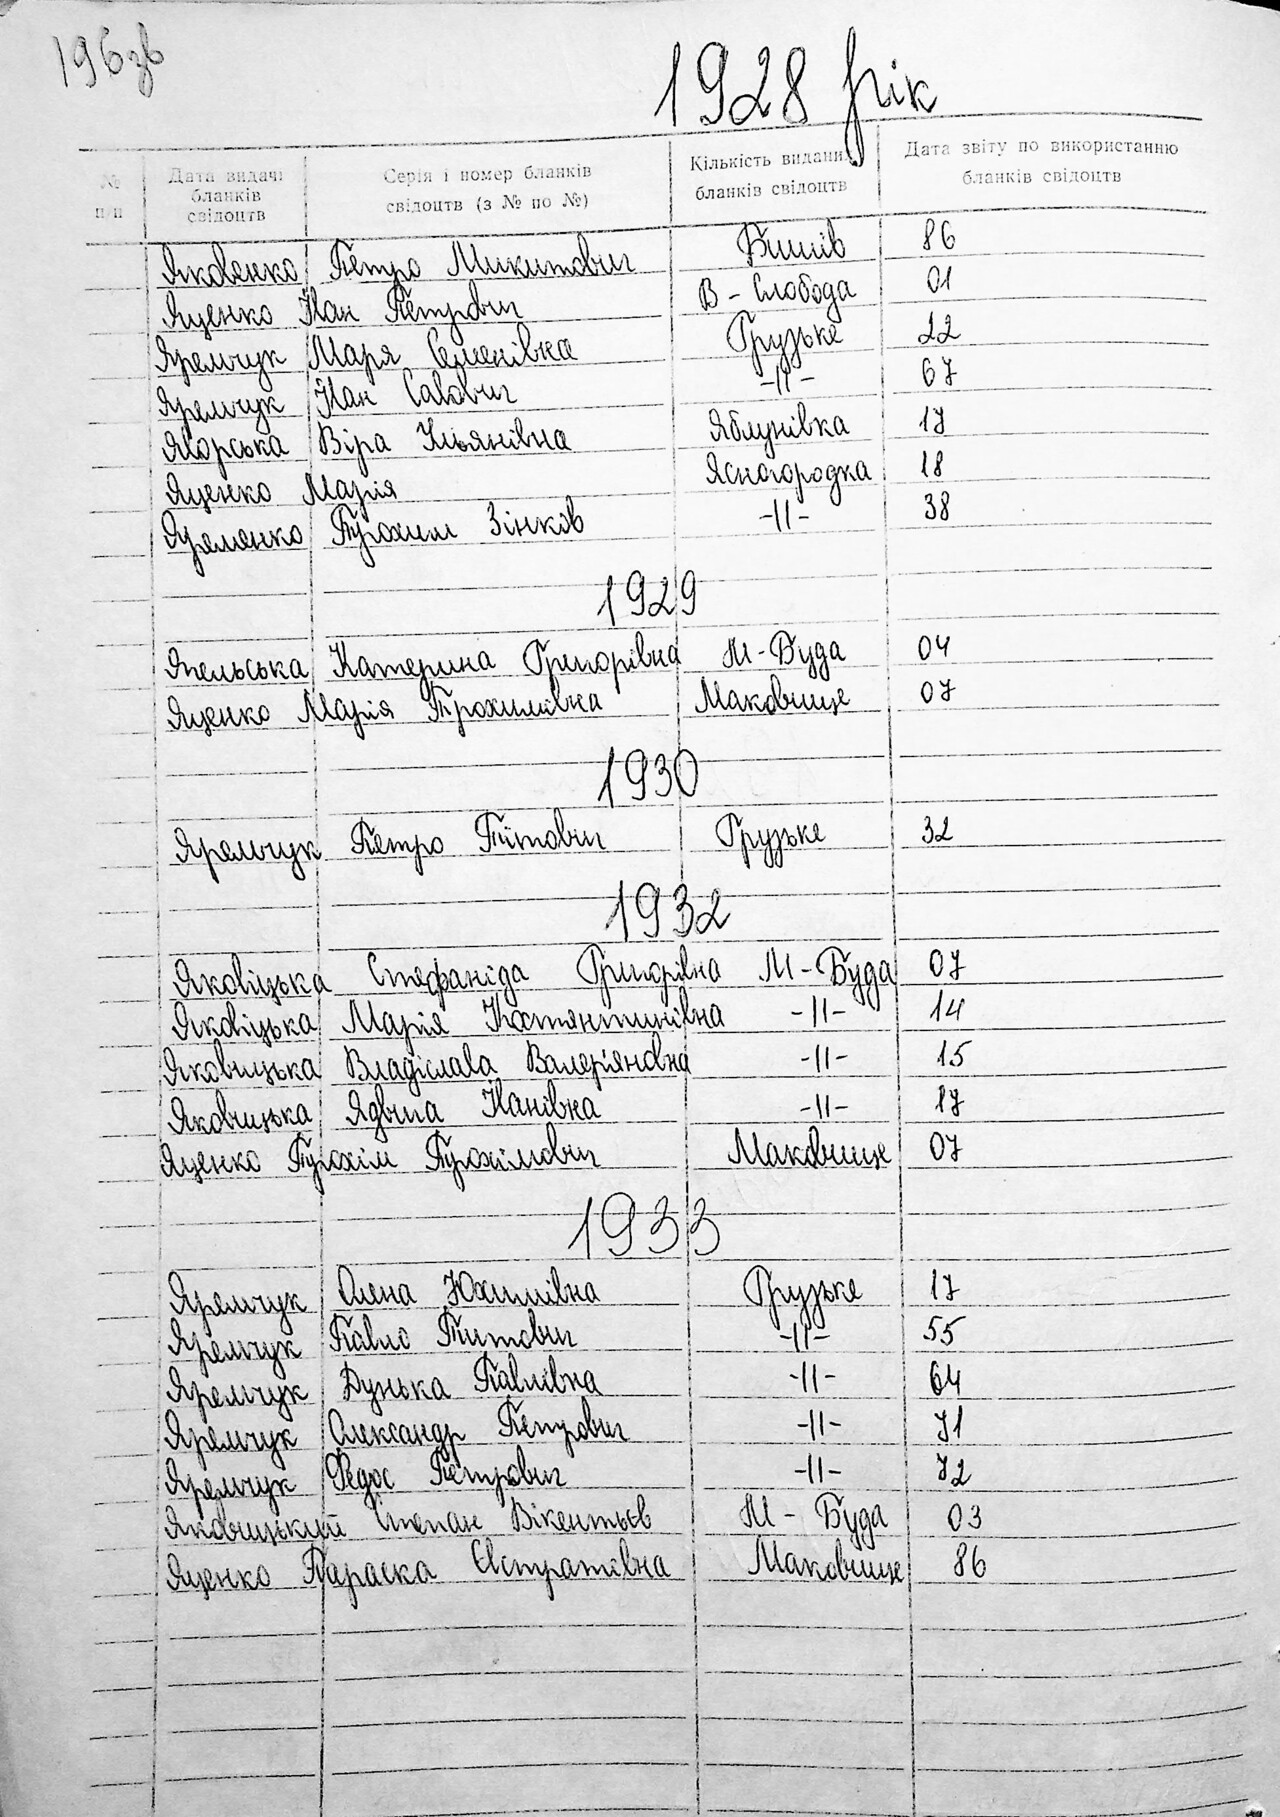 196зв
1928 рік
№ п/п
Дата видачі бланків свідоцтв
Серія і номер бланків свідоцтв (з № по №)
Кількість видани бланків свідоцтв
Дата звіту по використанню бланків свідоцтв
Яковенко Петро Микитович Бишів 86
Яценко Іван Петрович В-Слобода 01
Яремчук Марія Семенівна Грузьке 22
Яремчук Іван Савович -||- 67
Яворська Віра Ульянівна Яблунівка 17
Яценко Марія Ясногородка 18
Яременко Прохим Зінків -||- 38
1929
Ятельська Катерина Григорівна М-Буда 04
Яценко Марія Трохимівна Маковище 07
1930
Яремчук Петро Тітович Грузьке 32
1932
Яковіцька Стефаніда Григорівна М-Буда 07
Яковіцька Марія Костянтинівна -||- 14
Яковицька Владіслава Валер'яновна -||- 15
Яковицька Ядвига Іванівна -||- 17
Яценко Трохім Трохімович Маковище 07
1933
Яремчук Олена Юхимівна Грузьке 17
Яремчук Павло Титович -||- 55
Яремчук Дунька Павлівна -||- 64
Яремчук Олександр Петрович -||- 71
Яремчук Федос Петрович -||- 72
Яковицький Степан Вікентьєв М-Буда 03
Яценко Параска Євстратівна Маковище 86